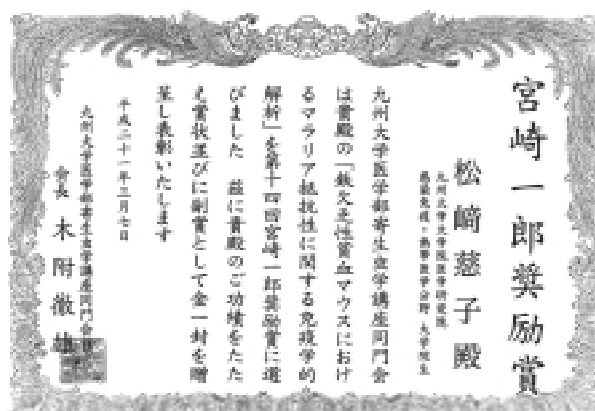 宮崎一郎奨励賞
松﨑慈子殿
九州大学大学院医学研究院
感染免疫・熱帯医学分野・大学院生
九州大学医学部寄生虫学講座同門会
は貴殿の「鉄欠乏性貧血マウスにおけ
るマラリア抵抗性に関する免疫学的
解析」を第十四回宮崎一郎奨励賞に選
びました 茲に貴殿のご功績をたた
え賞状並びに副賞として金一封を贈
呈し表彰いたします
平成二十一年二月七日
九州大学医学部寄生虫学講座同門会
会長 木附徹雄